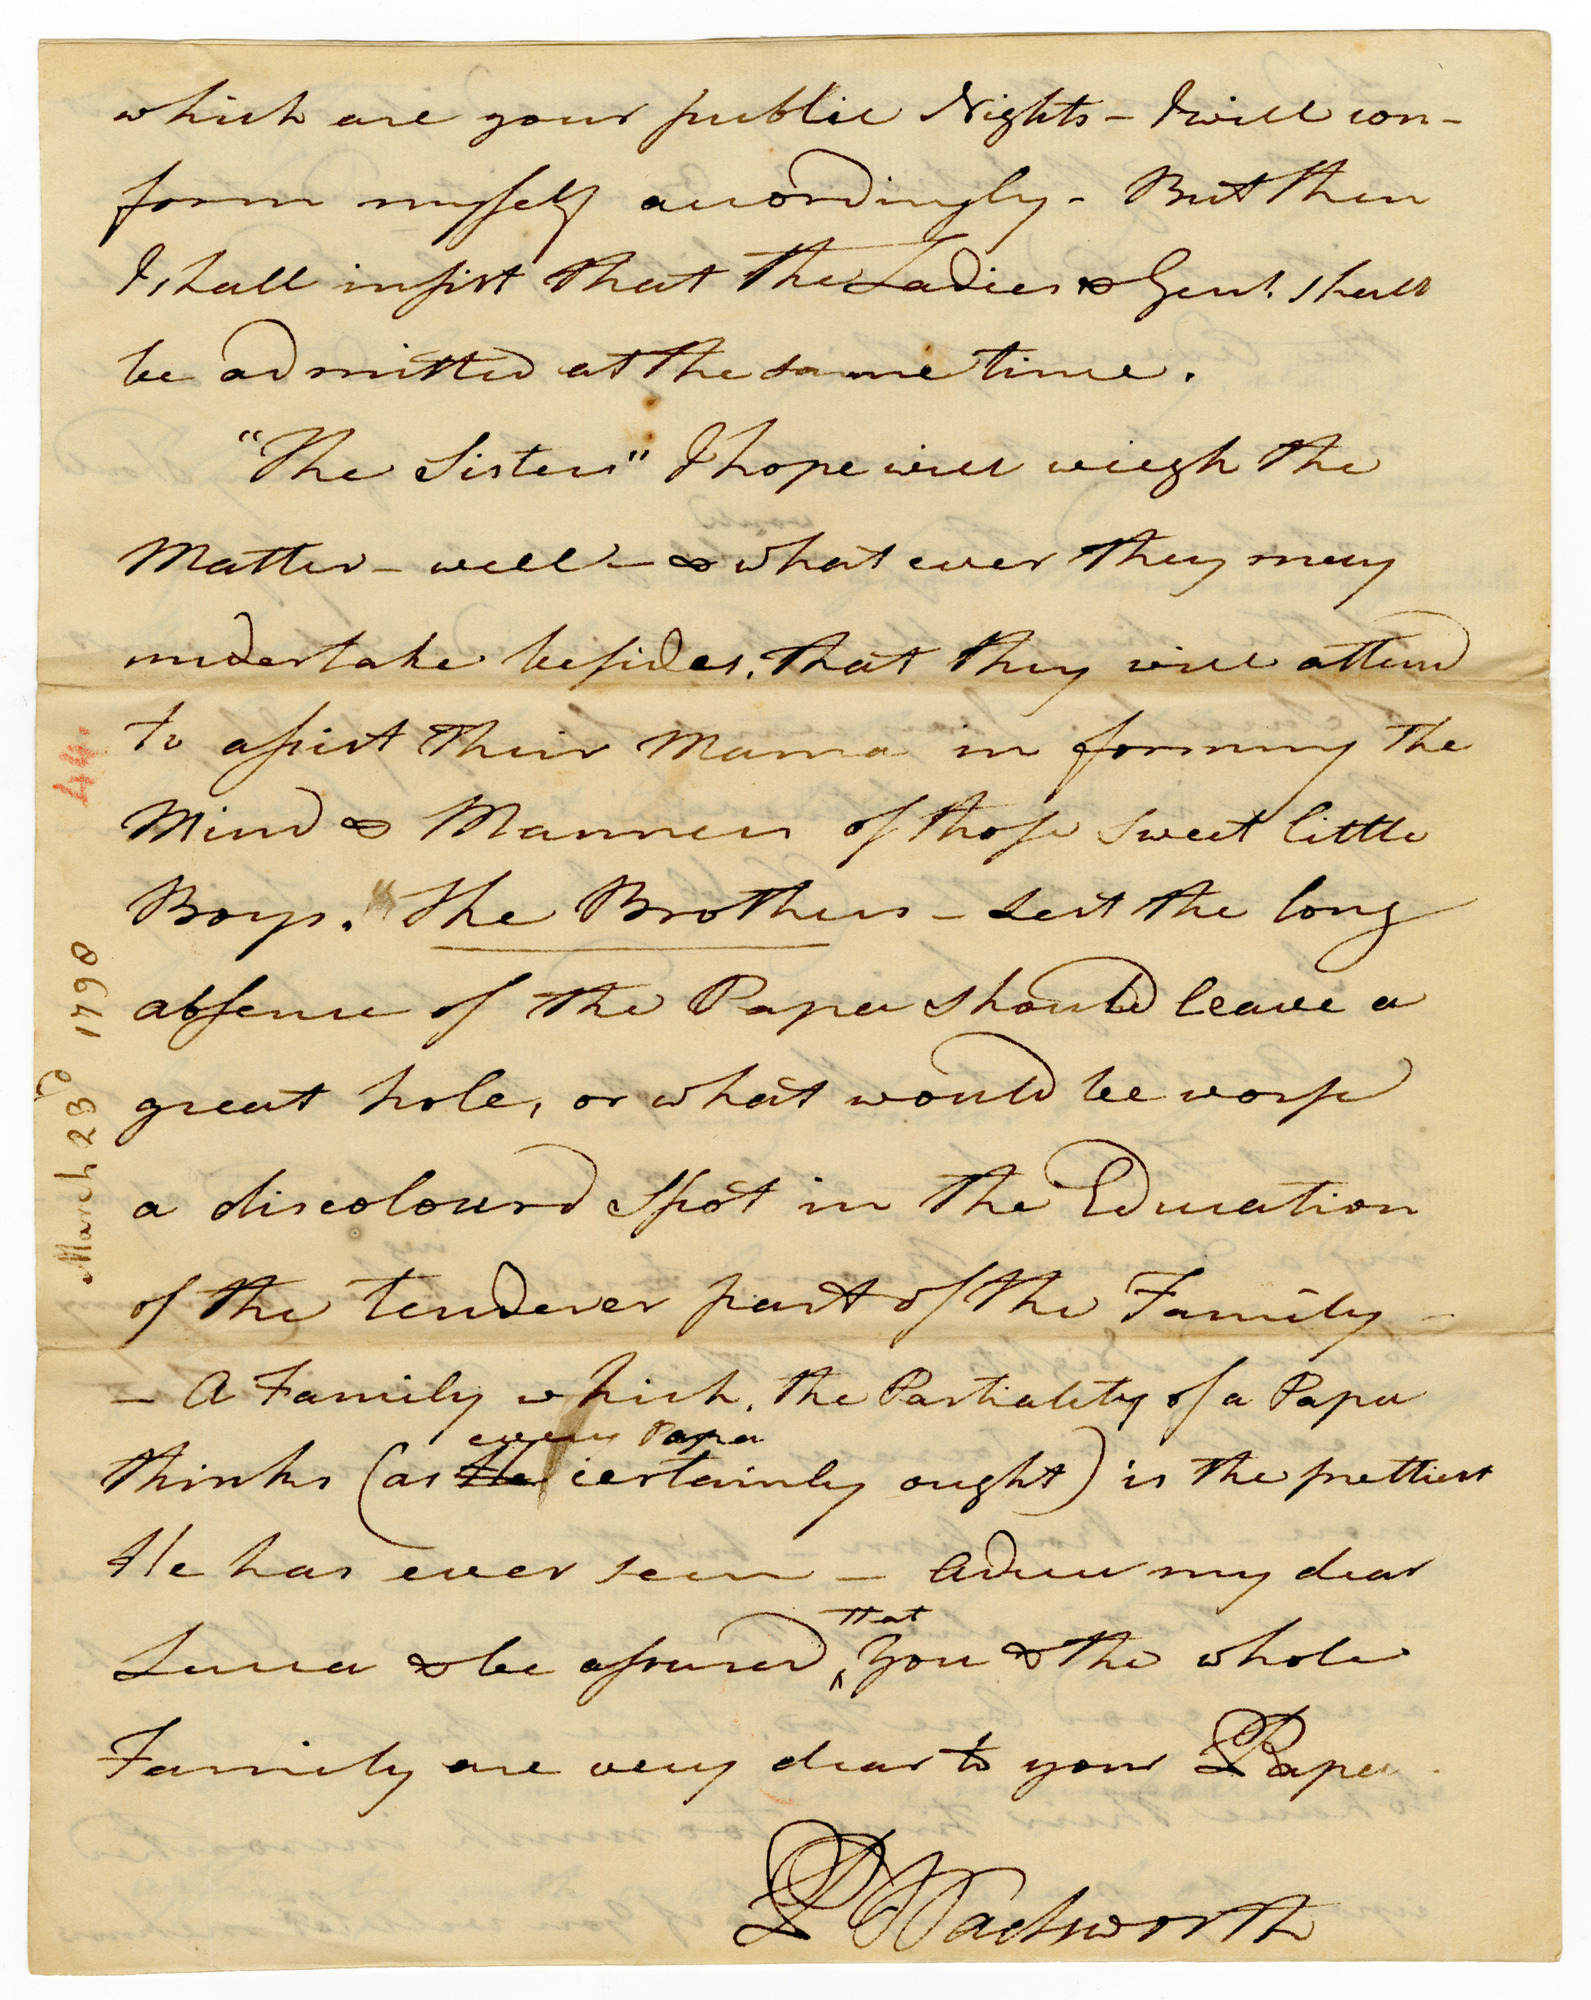 which are your public Nights – I will con-
form myself accordingly – But then
I shall insist that the Ladies & Gent. shall
be admitted at the same time.
"The Sisters" I hope will wiegh the
Matter – well – & what ever they may
undertake besides, that they will attend
to assist their Mama in forming the
Mind & Manners of those sweet little
Boys. "The Brothers – Lest the long
absence of the Papa should leave a
great hole, or what would be worse
a discolourd Spot in the Education
of the tenderer part of the Family –
– A Family which, the Partiality of a Papa
every Papa
thinks (as He certainly ought) is the prettiest
He has ever seen – Adieu my dear
that
Zilpa & be assured, ^ You & the whole
Family are very dear to your Papa
P Wadsworth
44.
March 23d 1798